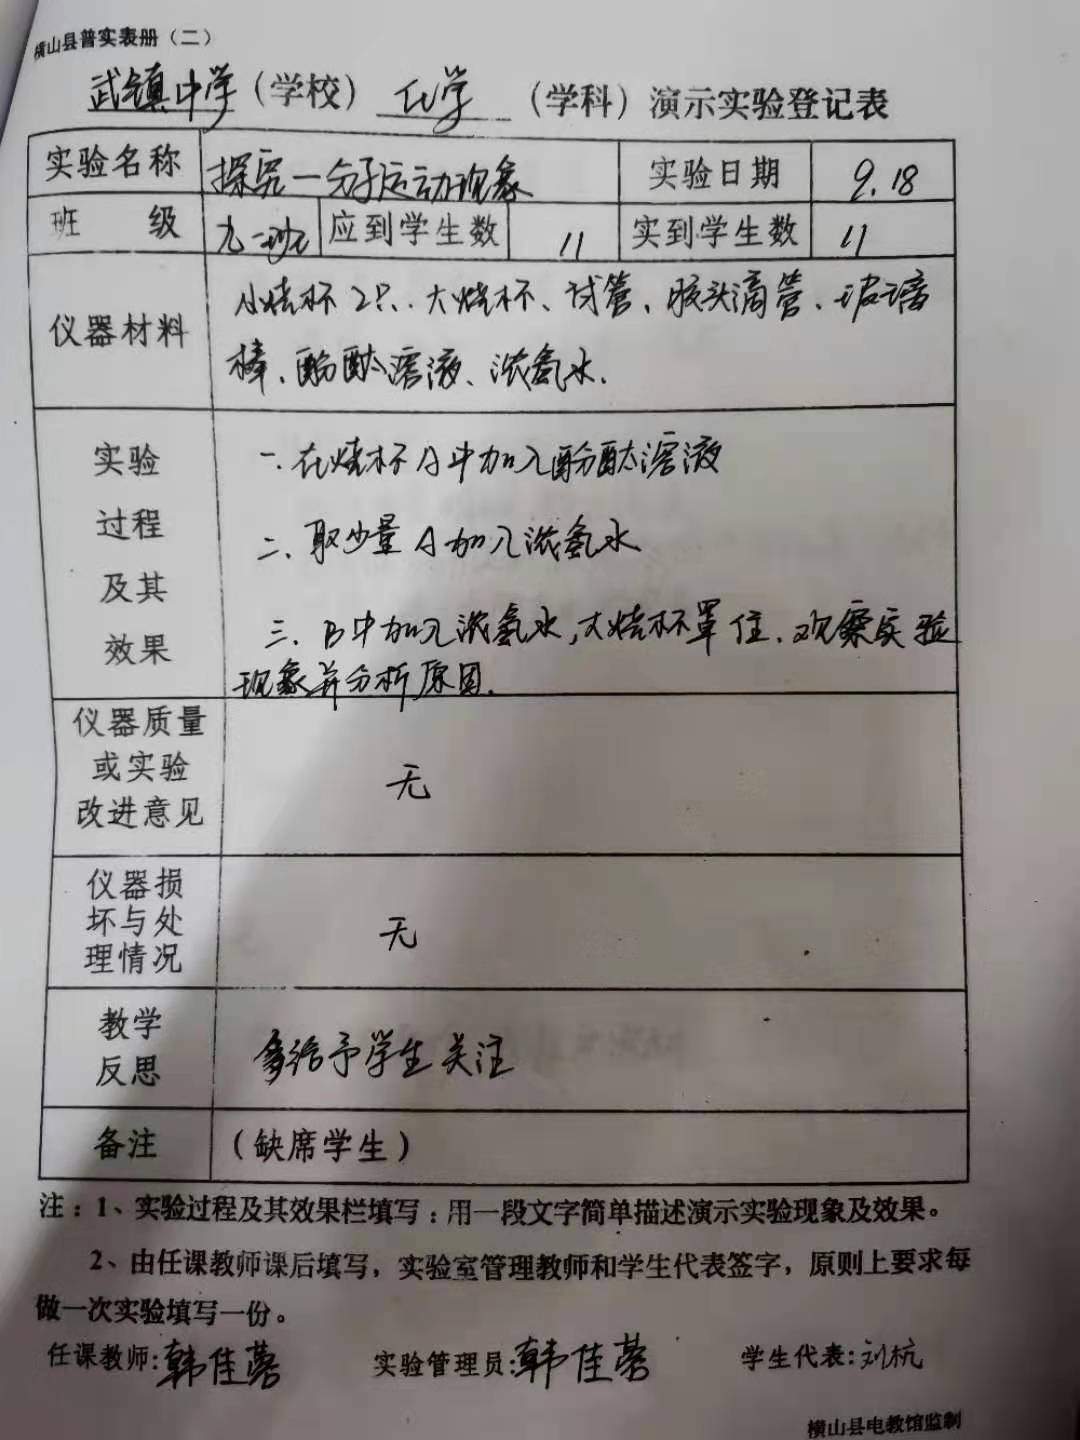 横山县普实表册（二）
武镇中学（学校） 化学 （学科）演示实验登记表
实验名称 探究一分子运动现象 实验日期 9.18
班 级 九一班 应到学生数 11 实到学生数 11
仪器材料 小烧杯2只、大烧杯、试管、胶头滴管、玻璃
棒、酚酞溶液、浓氨水.
实验
过程
及其
效果
一.在烧杯A中加入酚酞溶液
二、取少量A加入浓氨水
三、B中加入浓氨水,大烧杯罩住.观察实验
现象并分析原因.
仪器质量
或实验
改进意见
无
仪器损
坏与处
理情况
无
教学
反思
多给予学生关注
备注 （缺席学生）
注：1、实验过程及其效果栏填写：用一段文字简单描述演示实验现象及效果。
2、由任课教师课后填写，实验室管理教师和学生代表签字，原则上要求每
做一次实验填写一份。
任课教师:韩佳蓉 实验管理员:韩佳蓉 学生代表:刘杭
横山县电教馆监制